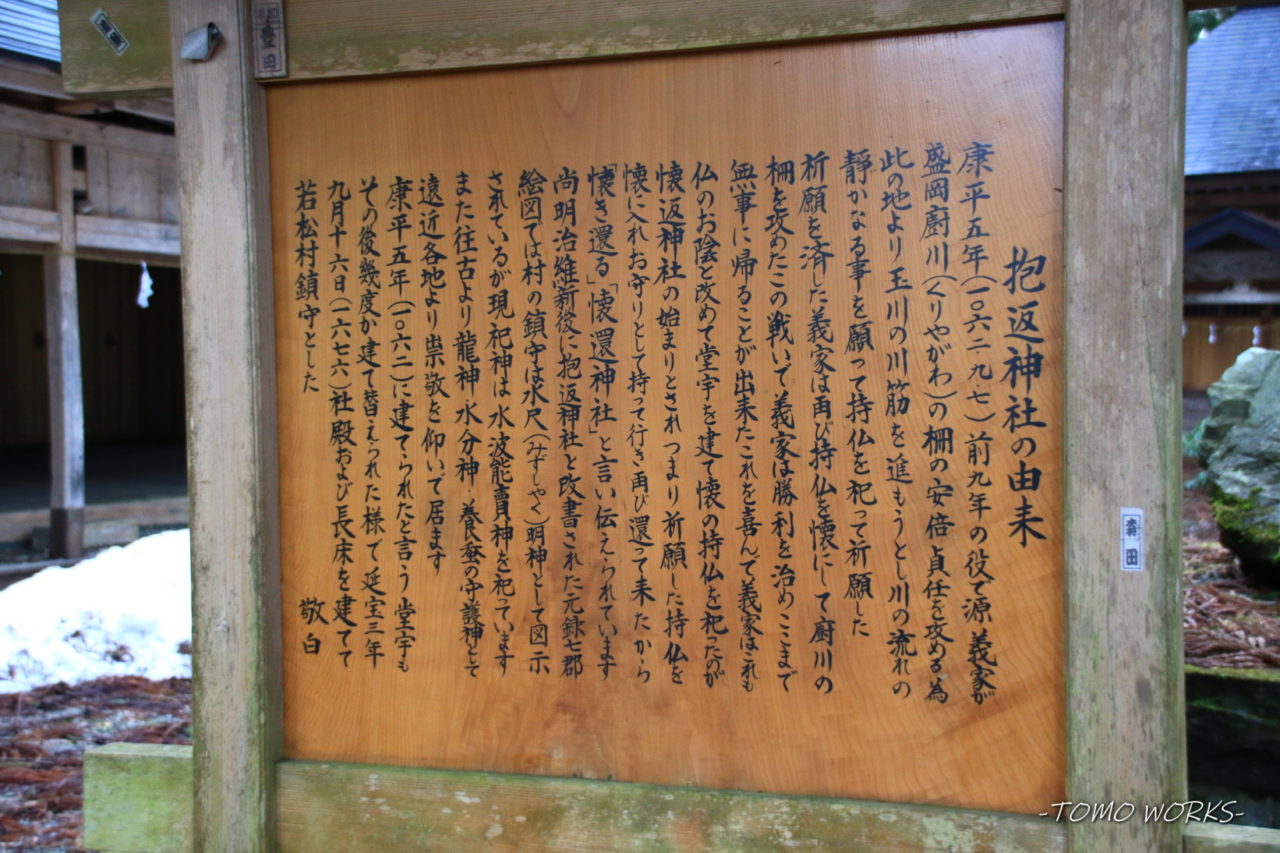 抱返神社の由来
康平五年(一〇六二・九・七)前九年の役で源義家が
盛岡廚川(くりやがわ)の柵の安倍貞任を攻める為
此の地より玉川の川筋を進もうとし川の流れの
静かなる事を願って持仏を祀って祈願した
祈願を済した義家は再び持仏を懐にして廚川の
柵を攻めたこの戦いで義家は勝利を治めここまで
無事に帰ることが出来たこれを喜んで義家はこれも
仏のお陰と改めて堂宇を建て懐の持仏を祀たのが
懐返神社の始まりとされつまり祈願した持仏を
懐に入れお守りとして持って行き再び還って来たから
「懐き還る」「懐還神社」と言い伝えられています
尚明治維新後に抱返神社と改書された元録七郡
絵図では村の鎮守は水尺(みずしやく)明神として図示
されているが現祀神は水波能賣神を祀っています
また往古より龍神水分神 養蚕の守護神として
遠近各地より崇敬を仰いで居ます
康平五年(一〇六二)に建てられたと言う堂宇も
その後幾度か建て替えられた様で延宝三年
九月十六日(一六七六)社殿および長床を建てて
若松村鎮守とした
敬白
豊田
森田
-TOMO WORKS-